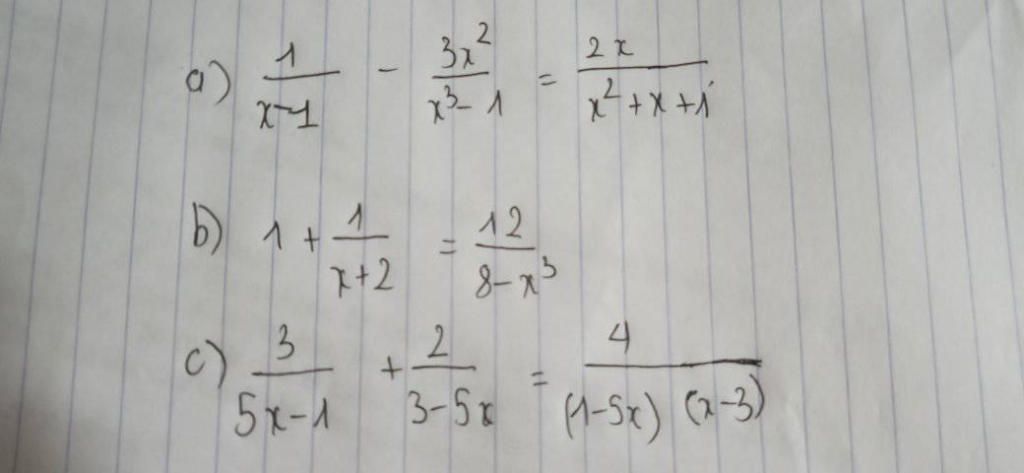 a) \frac{1}{x-1} - \frac{3x^2}{x^3-1} = \frac{2x}{x^2+x+1}
b) 1 + \frac{1}{x+2} = \frac{12}{8-x^3}
c) \frac{3}{5x-1} + \frac{2}{3-5x} = \frac{4}{(1-5x)(x-3)}